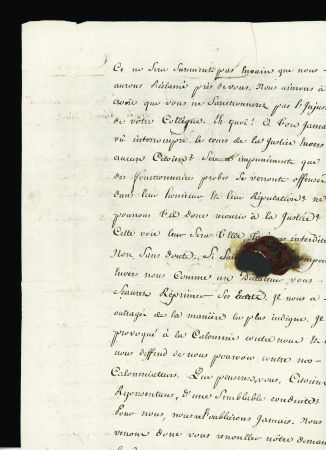 Ce ne sera surement pas envain que nous
aurons Réclamé près de vous. Nous aimons à
croire que vous ne Sanctionnerez pas l'Injus
de vôtre Collègue. Et quoi!
où interrompre le cours de la Justice Envers
aucun Citoien? Sera impunément que
des fonctionnaires probes se verront offensés
dans leur honneur Et leur Réputation? ne
pourront Ils donc recourir à la Justice?
Cette voie leur Sera Elle interdite
Non Sans doute. Si
Envers nous Comme un Dictateur vous
Scaurez Réprimer Ses Ecarts. Il nous a
outragé de la manière la plus indigne. Il
provoqué à la Calomnie contre nous Et il
nous deffend de nous pourvoir contre nos
Calomniateurs. Que penserez-vous, Citoiens
Représentans, d'une Semblable conduite?
Pour nous, nous l'oublierons Jamais. Nous
venons donc vous renouveller nôtre deman